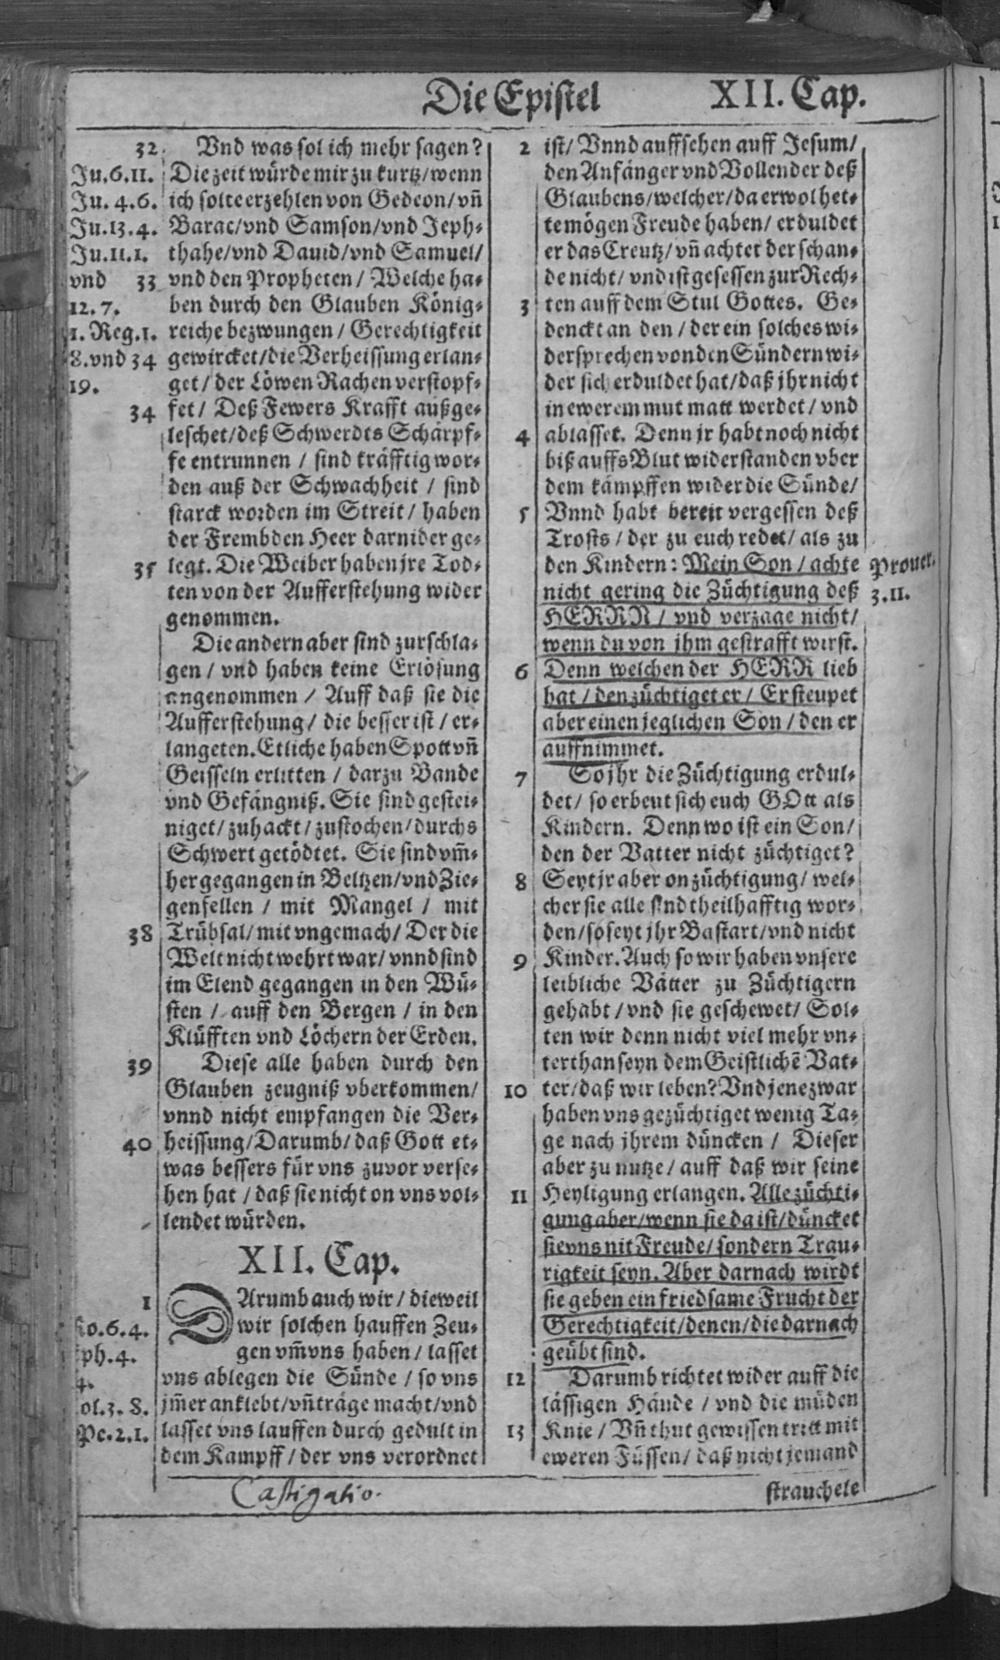 Die Epistel XII. Cap.
32. Vnd was sol ich mehr sagen?
Ju. 6. 11. Die zeit würde mir zu kurtz/ wenn
Ju. 4. 6. ich solte erzehlen von Gedeon/ vñ
Ju. 13. 4. Barac/ vnd Samson/ vnd Jeph-
Ju. 11. 1. thahe/ vnd Dauid/ vnd Samuel/
vnd 33 vnd den Propheten/ Welche ha-
12. 7. ben durch den Glauben König-
1. Reg. 1. reiche bezwungen/ Gerechtigkeit
8. vnd 34 gewircket/ die Verheissung erlan-
19. get/ der Löwen Rachen verstopf-
34 fet/ Deß Fewers Krafft außge-
leschet/ deß Schwerdts Schärpf-
fe entrunnen/ sind kräfftig wor-
den auß der Schwachheit/ sind
starck worden im Streit/ haben
der Frembden Heer darnider ge-
35 legt. Die Weiber haben jre Tod-
ten von der Aufferstehung wider
genommen.
Die andern aber sind zurschla-
gen/ vnd haben keine Erlösung
angenommen/ Auff daß sie die
Aufferstehung/ die besser ist/ er-
langeten. Etliche haben Spott vñ
Geisseln erlitten/ darzu Bande
vnd Gefängniß. Sie sind gestei-
niget/ zuhackt/ zustochen/ durchs
Schwert getödtet. Sie sind vm̃-
her gegangen in Beltzen/ vnd Zie-
genfellen/ mit Mangel/ mit
38 Trübsal/ mit vngemach/ Der die
Welt nicht wehrt war/ vnnd sind
im Elend gegangen in den Wü-
sten/ auff den Bergen/ in den
Klüfften vnd Löchern der Erden.
39 Diese alle haben durch den
Glauben zeugniß vberkommen/
vnnd nicht empfangen die Ver-
40 heissung/ Darumb/ daß Gott et-
was bessers für vns zuvor verse-
hen hat/ daß sie nicht on vns vol-
lendet würden.
XII. Cap.
1 DArumb auch wir/ dieweil
Ro. 6. 4. wir solchen hauffen Zeu-
ph. 4. gen vm̃ vns haben/ lasset
4. vns ablegen die Sünde/ so vns
ol. 3. 8. jm̃er anklebt/ vñ träge macht/ vnd
Pe. 2. 1. lasset vns lauffen durch gedult in
dem Kampff/ der vns verordnet
Castigatio.
2 ist/ Vnnd auffsehen auff Jesum/
den Anfänger vnd Vollender deß
Glaubens/ welcher/ da er wol het-
te mögen Freude haben/ erduldet
er das Creutz/ vñ achtet der schan-
de nicht/ vnd ist gesessen zur Rech-
3 ten auff dem Stul Gottes. Ge-
denckt an den/ der ein solches wi-
dersprechen von den Sündern wi-
der sich erduldet hat/ daß jhr nicht
in ewerem mut matt werdet/ vnd
4 ablasset. Denn jr habt noch nicht
biß auffs Blut widerstanden vber
dem kämpffen wider die Sünde/
5 Vnnd habt bereit vergessen deß
Trosts/ der zu euch redet/ als zu
den Kindern: Mein Son/ achte Prouer.
nicht gering die Züchtigung deß 3. 11.
HERRN/ vnd verzage nicht/
wenn du von jhm gestrafft wirst.
6 Denn welchen der HERR lieb
hat/ den züchtiget er/ Er steupet
aber einen jeglichen Son/ den er
auffnimmet.
7 So jhr die Züchtigung erdul-
det/ so erbeut sich euch GOtt als
Kindern. Denn wo ist ein Son/
den der Vatter nicht züchtiget?
8 Seyt jr aber on züchtigung/ wel-
cher sie alle sind theilhafftig wor-
den/ so seyt jhr Bastart/ vnd nicht
9 Kinder. Auch so wir haben vnsere
leibliche Vätter zu Züchtigern
gehabt/ vnd sie geschewet/ Sol-
ten wir denn nicht viel mehr vn-
terthan seyn dem Geistlichẽ Vat-
10 ter/ daß wir leben? Vnd jene zwar
haben vns gezüchtiget wenig Ta-
ge nach jhrem düncken/ Dieser
aber zu nutze/ auff daß wir seine
11 Heyligung erlangen. Alle züchti-
gung aber/ wenn sie da ist/ düncket
sie vns nit Freude/ sondern Trau-
rigkeit seyn. Aber darnach wirdt
sie geben ein friedsame Frucht der
Gerechtigkeit/ denen/ die darnach
geübt sind.
12 Darumb richtet wider auff die
lässigen Hände/ vnd die müden
13 Knie/ Vñ thut gewissen tritt mit
eweren Füssen/ daß nicht jemand
strauchele